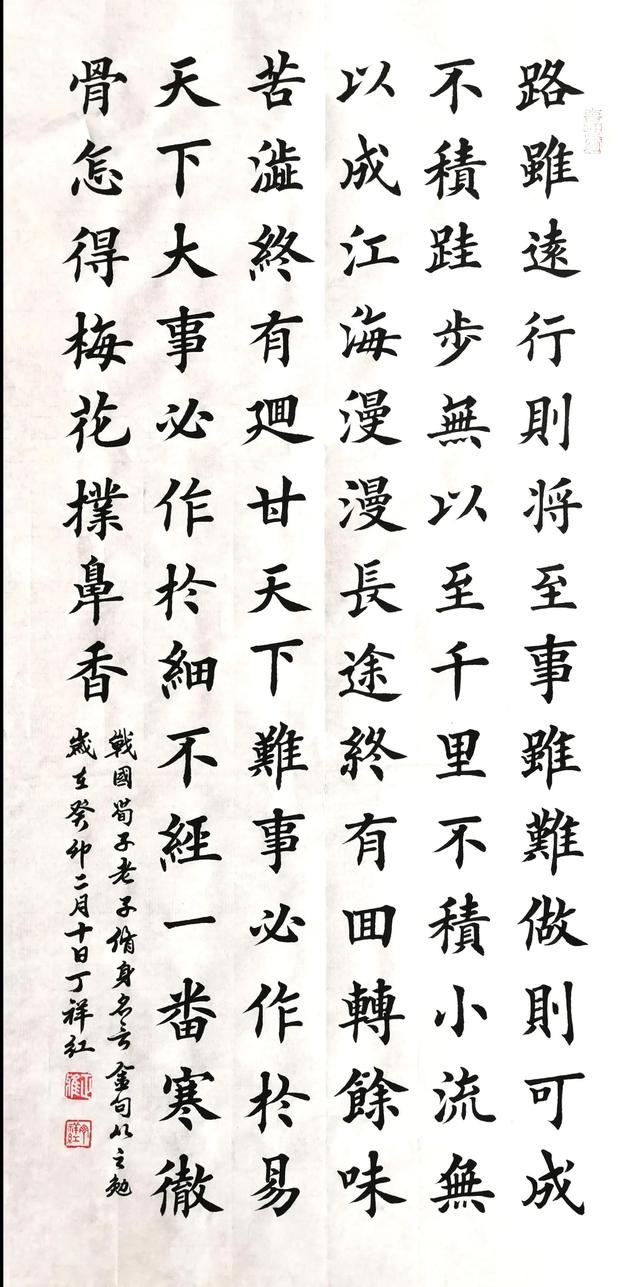 路雖遠行則將至事雖難做則可成
不積跬步無以至千里不積小流無
以成江海漫漫長途終有回轉餘味
苦澁終有廻甘天下難事必作於易
天下大事必作於細不經一番寒徹
骨怎得梅花撲鼻香
戰國荀子老子脩身名言金句以之勉
歲在癸卯二月十日丁祥紅